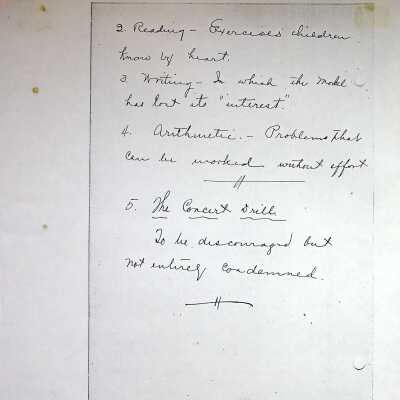 2. Reading - Exercises children
know by heart.
3. Writing - In which the model
has lost its "interest."
4. Arithmetic. - Problems that
can be worked without effort
5. The Concert Drill.
To be discouraged but
not entirely condemned.